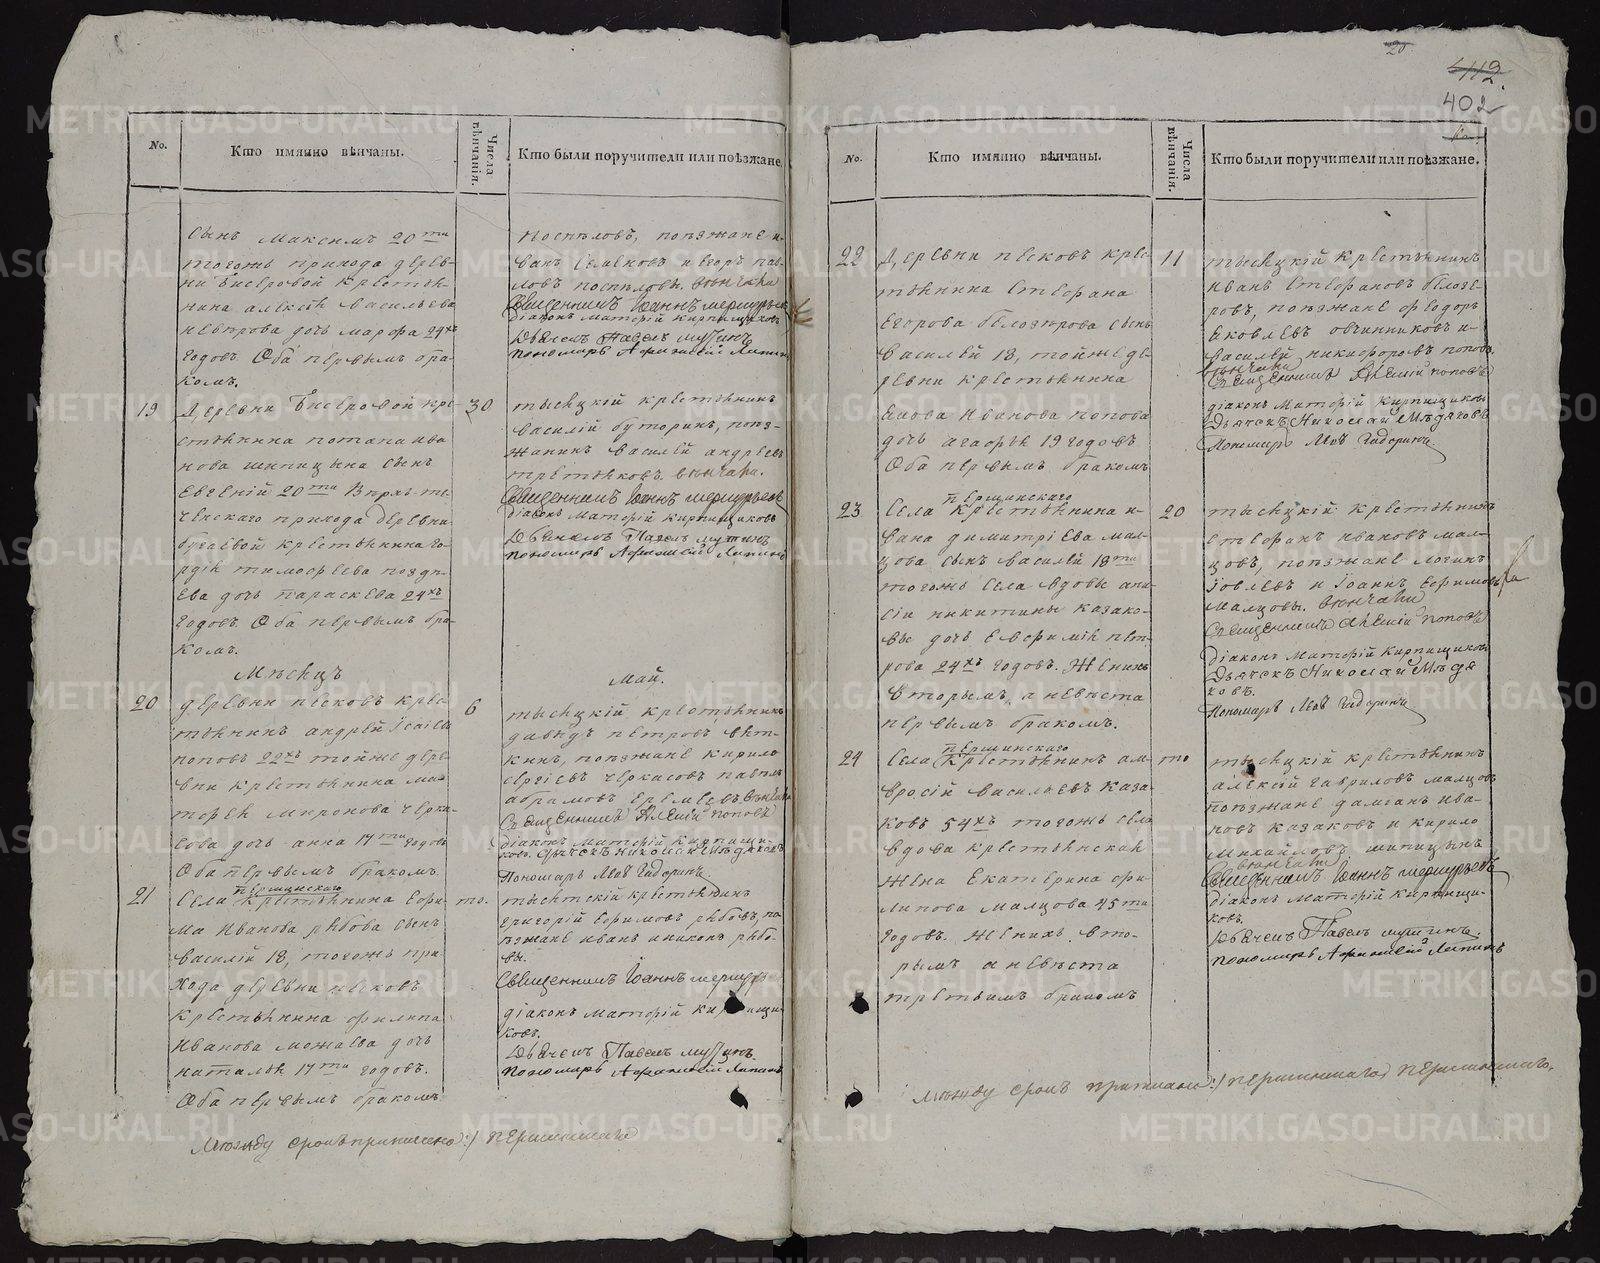 20
412.
402
No.
Кто имянно вѣнчаны.
Числа вѣнчанія.
Кто были поручители или поѣзжане.
сынъ Максимъ 20ти
тогожъ прихода дерев-
ни Бисеровой крестья-
нина Алексѣя Васильева
дочь Марфа 24хъ
годовъ. Оба первымъ бра-
комъ.
Поспѣловъ, поѣзжане И-
ванъ Семеновъ и Егоръ Пав-
ловъ Поспѣловы. вѣнчали
Священникъ Іоаннъ
діаконъ Матфій Кирпищиковъ
Дьячекъ Павелъ
пономарь Афанасій
19
Деревни Бисеровой кре-
стьянина Потапа Ива-
нова Шипицына сынъ
Евгеній 20ти
прихода деревни
крестьянина Го-
рдія Тимофеева Поздн-
ева дочь Параскева 24хъ
годовъ. Оба первымъ бра-
комъ.
30
тысяцкій крестьянинъ
Василій Буторинъ, поѣз-
жанинъ Василій Андреевъ
Третьяковъ. вѣнчали.
Священникъ Іоаннъ
діаконъ Матфій Кирпищиковъ
Дьячекъ Павелъ
пономарь Афанасій
Мѣсяцъ
Май.
20
деревни Песковъ крес-
тьянинъ Андрей Исаіевъ
Поповъ 22хъ тойже дере-
вни крестьянина Мат-
фея Миронова Черка-
сова дочь Анна 17ти годовъ
Оба первымъ бракомъ.
6
тысяцкій крестьянинъ
Давидъ Петровъ Вят-
кинъ, поѣзжане Кирило
Сергіевъ Черкасовъ Павелъ
Абрамовъ Еремеевъ. вѣнчали
Священникъ Алексій Поповъ
діаконъ Матфій Кирпищи-
ковъ. Дьячекъ Николай Мѣдяковъ
Пономарь Левъ
21
Села Першинского крестьянина Ефи-
ма Иванова Рябова сынъ
Василій 18, тогожъ при-
хода деревни Песковъ
крестьянина Филипа
Иванова Можаева дочь
Наталья 17ти годовъ.
Оба первымъ бракомъ
то.
тысяцкій крестьянинъ
Григорій Ефимовъ Рябовъ, по-
ѣзжане Иванъ Рябо-
вы.
Священникъ Іоаннъ
діаконъ Матфій Кирпищи-
ковъ.
Дьячекъ Павелъ
Пономарь Афанасій
Между строкъ приписано:/ Першинскаго
No.
Кто имянно вѣнчаны.
Числа вѣнчанія.
Кто были поручители или поѣзжане.
22
Деревни Песковъ крес-
тьянина Стефана
Егорова Бѣлозерова сынъ
Василей 18, тойже де-
ревни крестьянина
Иванова Попова
дочь Агафья 19 годовъ
Оба первымъ бракомъ
11
тысяцкій крестьянинъ
Иванъ Стефановъ Бѣлозе-
ровъ, поѣзжане Феодоръ
Яковлевъ Овчинниковъ и
Василей Никифоровъ Поповъ.
вѣнчали
Священникъ Алексій Поповъ
діаконъ Матфій Кирпищиковъ
Дьячекъ Николай Мѣдяковъ
Пономарь Левъ
23
Села Першинского крестьянина И-
вана Димитріева Мал-
цова сынъ Василей 18ти
тогожъ села вдовы Ани-
сіи Никитины Казако-
вы дочь Евфимія Пет-
рова 24хъ годовъ. Женихъ
вторымъ, а невѣста
первымъ бракомъ.
20
тысяцкій крестьянинъ
Стефанъ Ивановъ Мал-
цовъ, поѣзжане Логинъ
Іовлевъ и Іоаннъ Ефимовъ
Малцовы. вѣнчали
Священникъ Алексій Поповъ
діаконъ Матфій Кирпищиковъ
Дьячекъ Николай Мѣдя-
ковъ.
Пономарь Левъ
24
Села Першинского крестьянинъ Ам-
вросій Васильевъ Каза-
ковъ 54хъ тогожъ села
вдова крестьянская
жена Екатерина Фи-
липова Малцова 45ти
годовъ. Женихъ вто-
рымъ а невѣста
третьимъ бракомъ
то
тысяцкій крестьянинъ
Алексій Гавриловъ Малцовъ
поѣзжане Даміанъ Ива-
новъ Казаковъ и Кирило
Михайловъ Шипицынъ
вѣнчали
Священникъ Іоаннъ
діаконъ Матфій Кирпищи-
ковъ.
Дьячекъ Павелъ
пономарь Афанасій
Между строкъ приписано:/ Першинскаго, Першинскаго.
METRIKI.GASO-URAL.RU